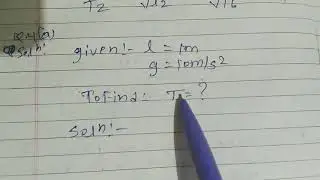 T2 √12 √16
Q.4(a)
Soln:- given:- l = 1m
g = 10m/s²
To find:- T = ?
Soln:-